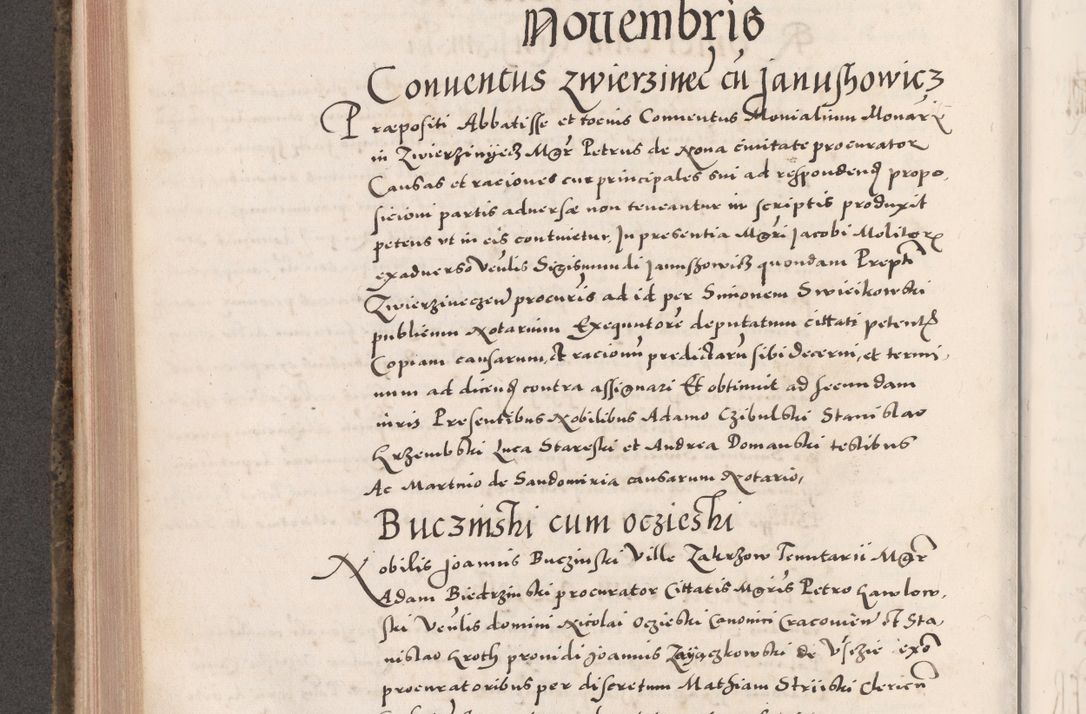 Nouembris
Conuentus Zwierzinec cu Janushowicz
Præpositi Abbatisse et toeius Conuentus Monialium Monarii
in Zwierzinyecz Mgr Petrus de Noua ciuitate procurator
Causas et raciones cur principales sui ad respondend propo,
sicioni partis aduersæ non teneantur in scriptis produxit
petens vt in eis contuietur, In presentia Mgri Jacobi Molitor
exaduerso Veulis Sigismundi Janushowicz quondam Prepti
Zwierzineczen procuris ad id per Simonem Swieikowski
publicum Notarium Exequutore deputatum cittati petent
Copiam causarum, et racionu predictaru sibi decerni, et termi,
num ad dicend contra assignari Et obtinuit ad secundam
iuris Presentibus Nobilibus Adamo Czibulski Stanislao
Krzembski Luca Stareski et Andrea Domanski testibus
Ac Martino de Sandomiria causarum Notario,
Buczinski cum oczieski
Nobilis Joannis Buczinski Ville Zakrzow Tenutarii Mgr
Adam Biedrzinski procurator Cittatis Mgris Petro Kawlow,
ski Veulis domini Nicolai Oczieski Canonici Cracouien et Sta,
nislao Kroth prouidi Joannis Zayączkowski de Vsczie exo
procuratoribus per discretum Mathiam Striiski Clericu